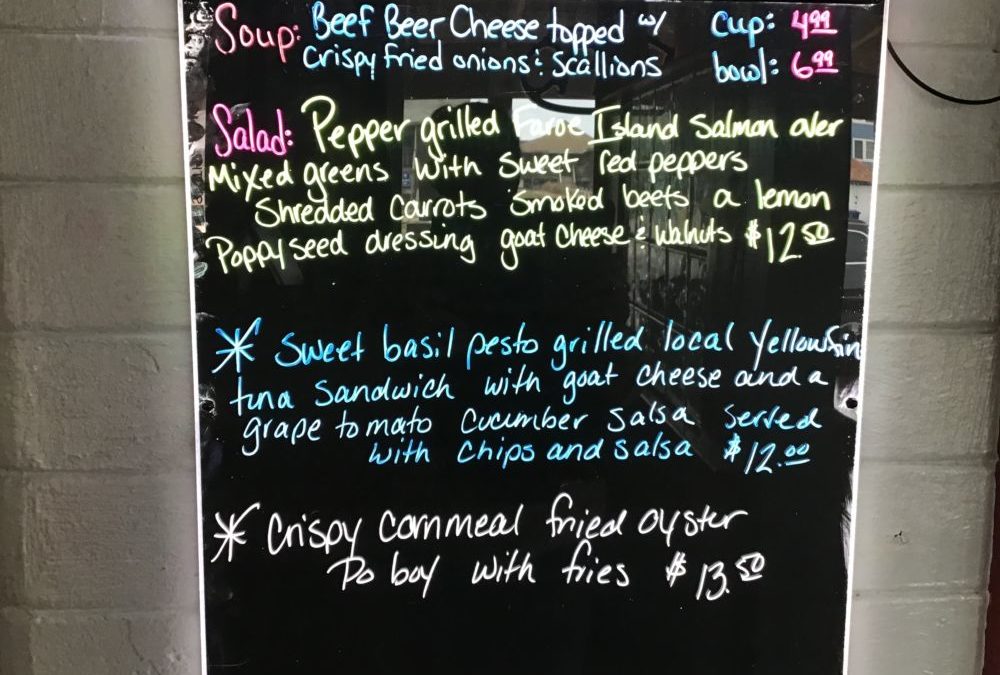 Soup: Beef Beer Cheese topped w/ cup: 4.99
Crispy fried onions & Scallions bowl: 6.99
Salad: Pepper grilled Faroe Island Salmon over
Mixed greens with sweet red peppers
Shredded carrots smoked beets a lemon
Poppyseed dressing goat cheese & walnuts $12.50
* Sweet basil pesto grilled local yellowfin
tuna Sandwich with goat cheese and a
grape tomato cucumber salsa served
with chips and salsa $12.00
* Crispy cornmeal fried oyster
Po boy with fries $13.50